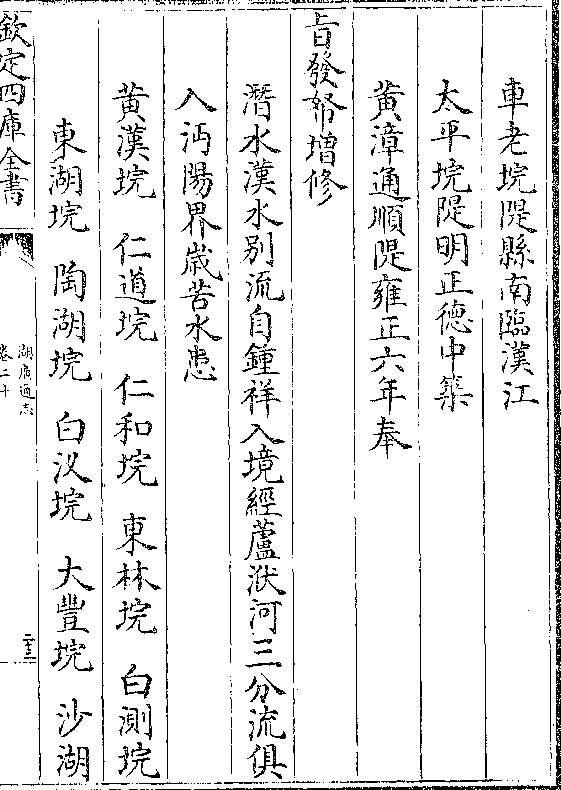 車老垸隄縣南臨漢江
太平垸隄明正德中築
黄漳通順隄雍正六年奉
㫖發帑增修
潛水漢水别流自鍾祥入境經蘆洑河三分流俱
入沔陽界歳苦水患
黄漢垸　仁道垸　仁和垸　東林垸　白測垸
東湖垸　陶湖垸　白汊垸　大豐垸　沙湖
欽定四庫全書
湖廣通志
卷二十
二十三